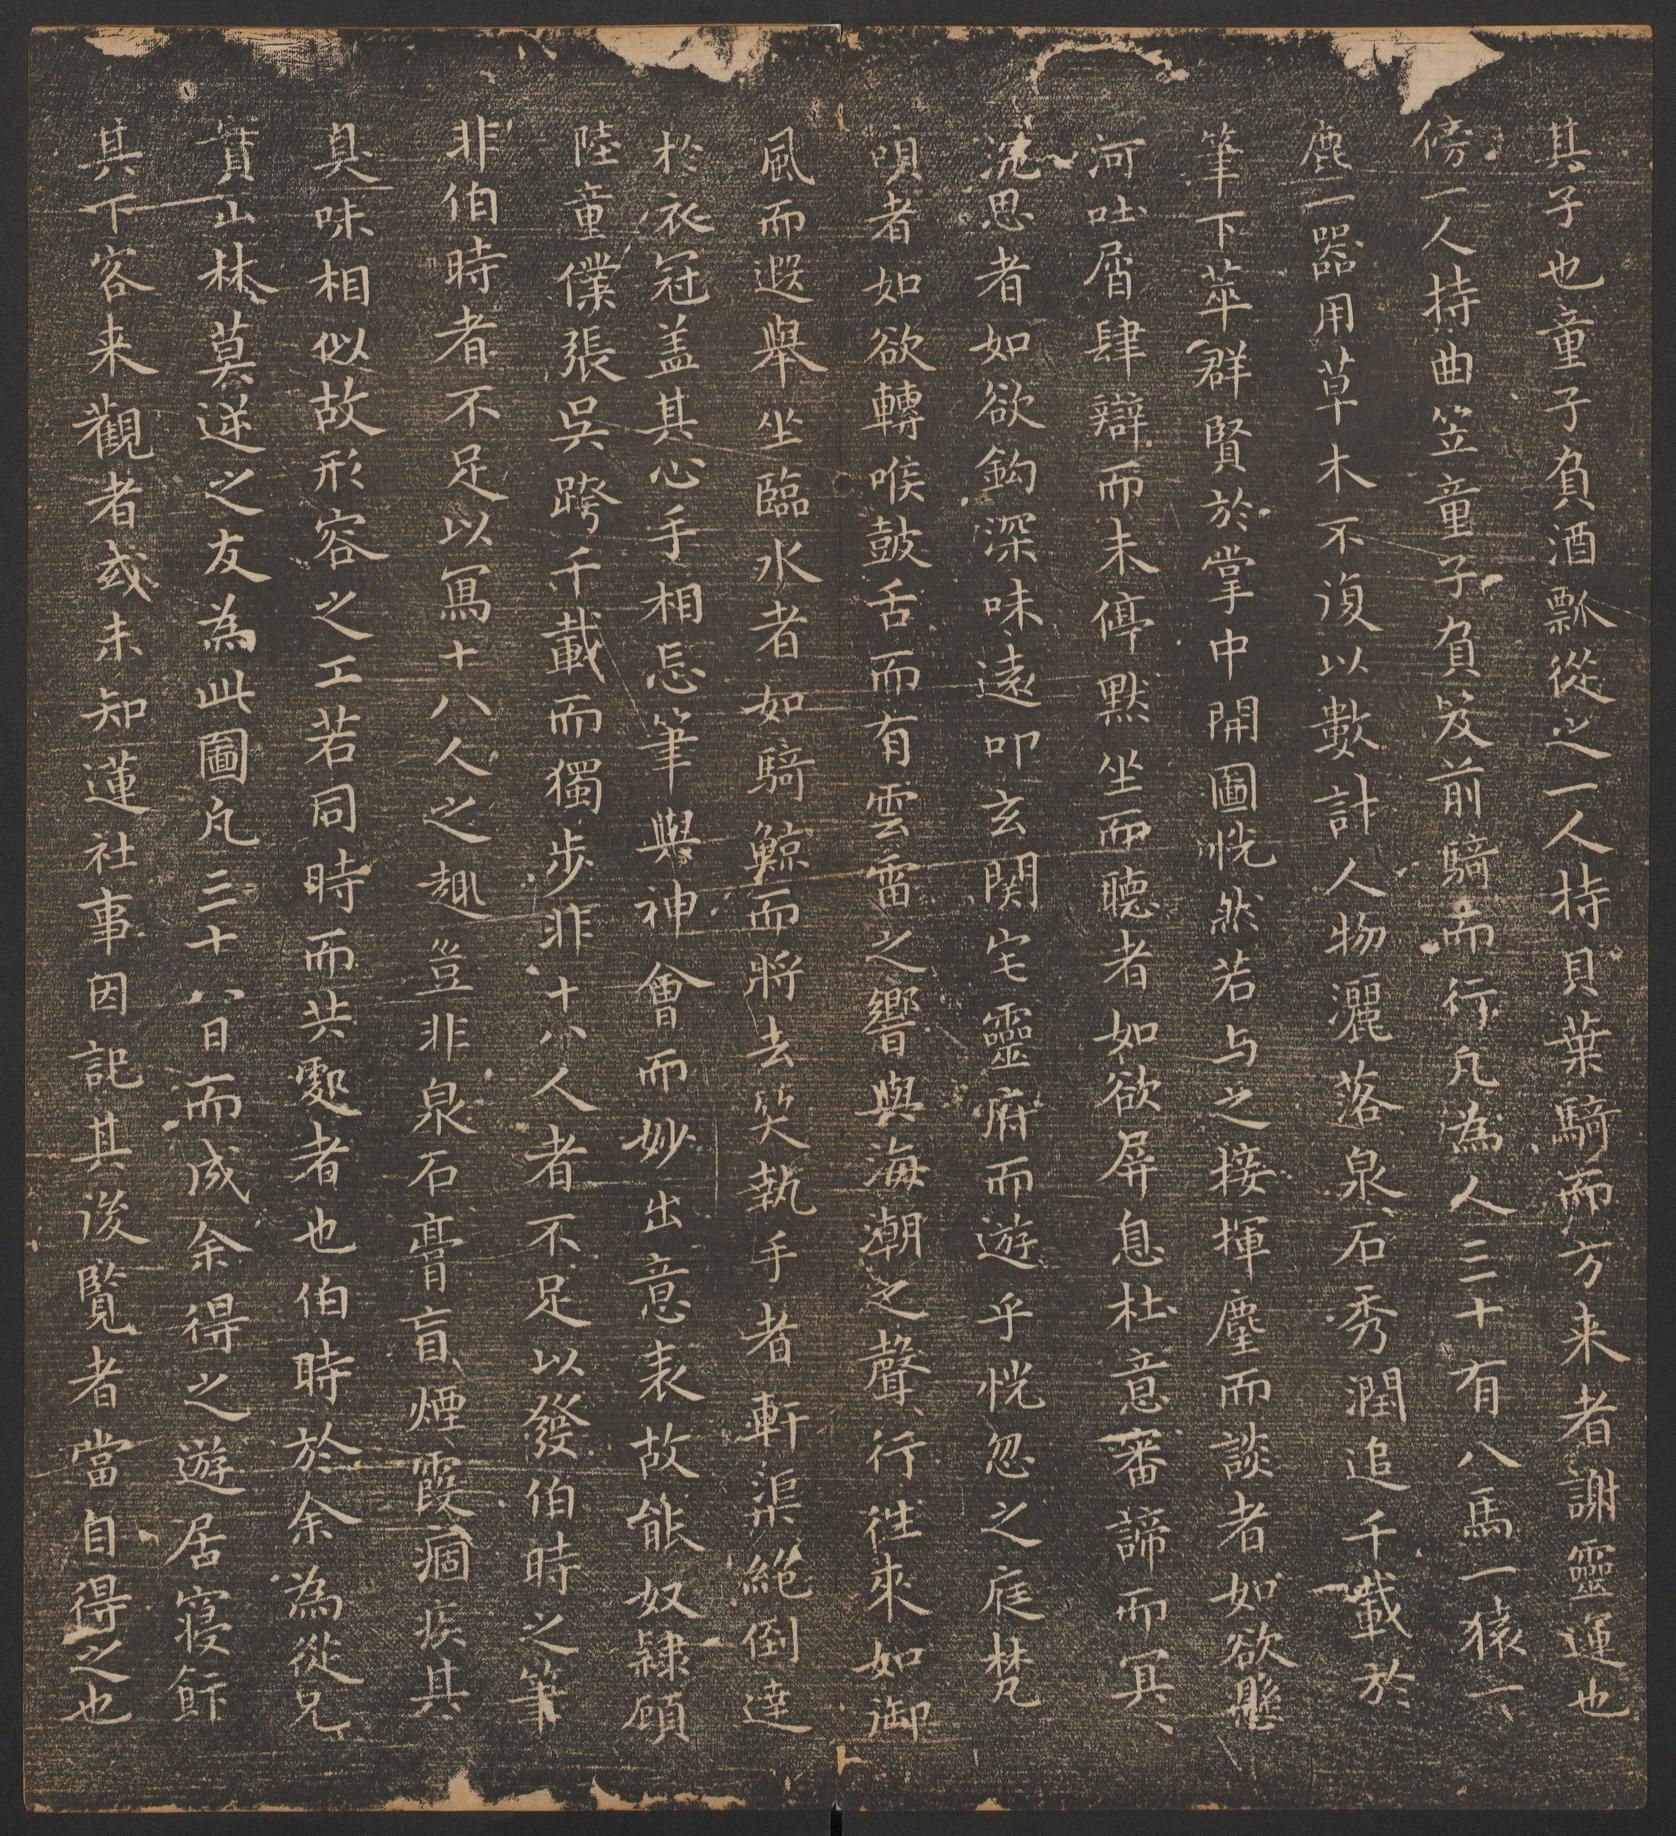 其子也童子負酒瓢從之一人持貝葉騎而方来者謝靈運也
傍一人持曲笠童子負笈前騎而行凡為人三十有八馬一猿一
鹿一器用草木不復以數計人物灑落泉石秀潤追千載於
筆下萃群賢於掌中開圖恍然若与之接揮麈而談者如欲懸
河吐屑肆辯而未停默坐而聽者如欲屏息杜意審諦而冥
沉思者如欲鈎深味遠叩玄関宅靈府而遊乎恍忽之庭梵
唄者如欲轉喉鼓舌而有雲雷之響與海潮之聲行徃來如御
風而遐舉坐臨水者如騎鯨而將去笑執手者軒渠絶倒達
於衣冠盖其心手相忘筆與神會而妙出意表故能奴隷顧
陸童僕張吳跨千載而獨步非十八人者不足以發伯時之筆
非伯時者不足以寫十八人之趣豈非泉石膏肓煙霞痼疾其
臭味相似故形容之工若同時而共處者也伯時於余為從兄
實山林莫逆之友為此圖凡三十八日而成余得之遊居寢飰
其下客来觀者或未知蓮社事因記其後覽者當自得之也